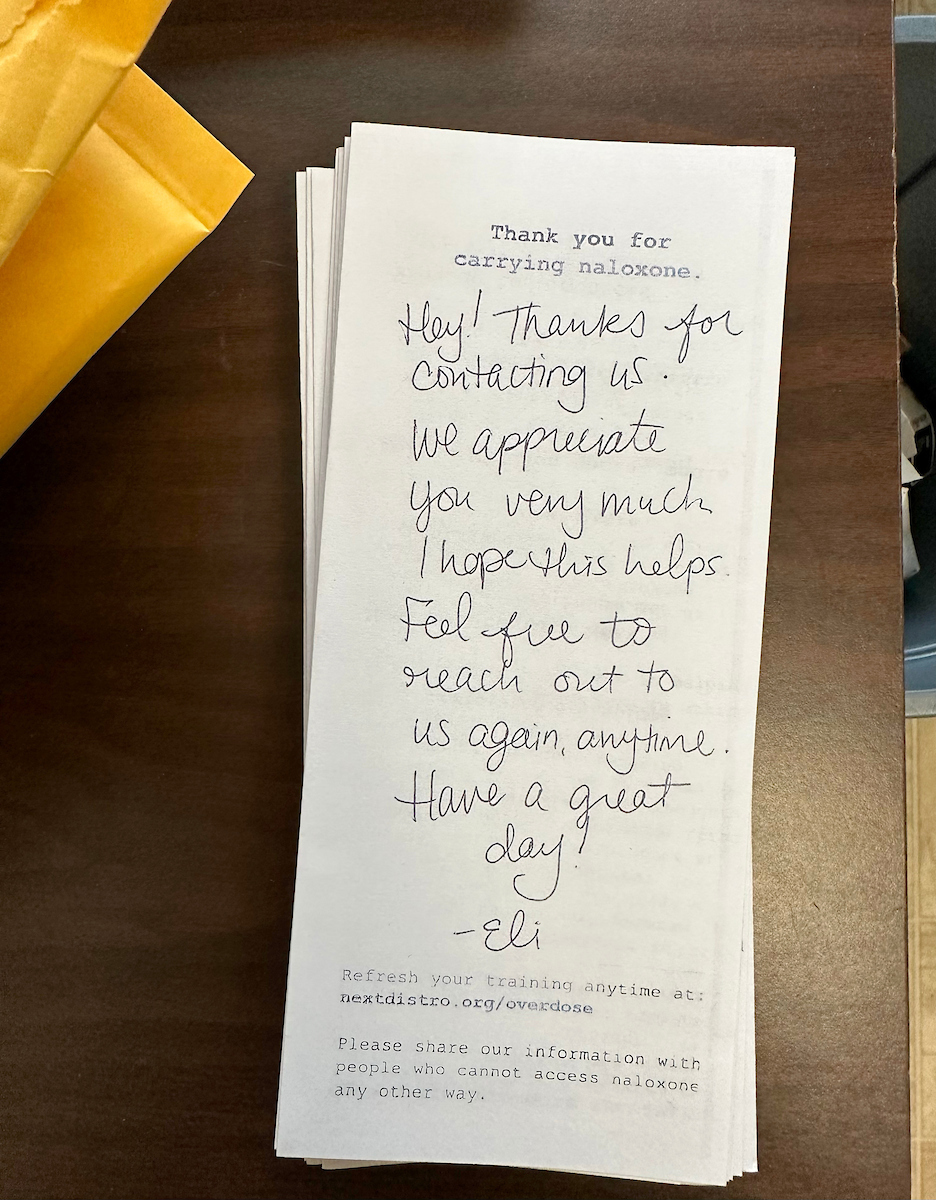 Thank you for
carrying naloxone.
Hey! Thanks for
contacting us.
We appreciate
you very much
I hope this helps.
Feel free to
reach out to
us again, anytime.
Have a great
day!
-Eli
Refresh your training anytime at:
nextdistro.org/overdose
Please share our information with
people who cannot access naloxone
any other way.